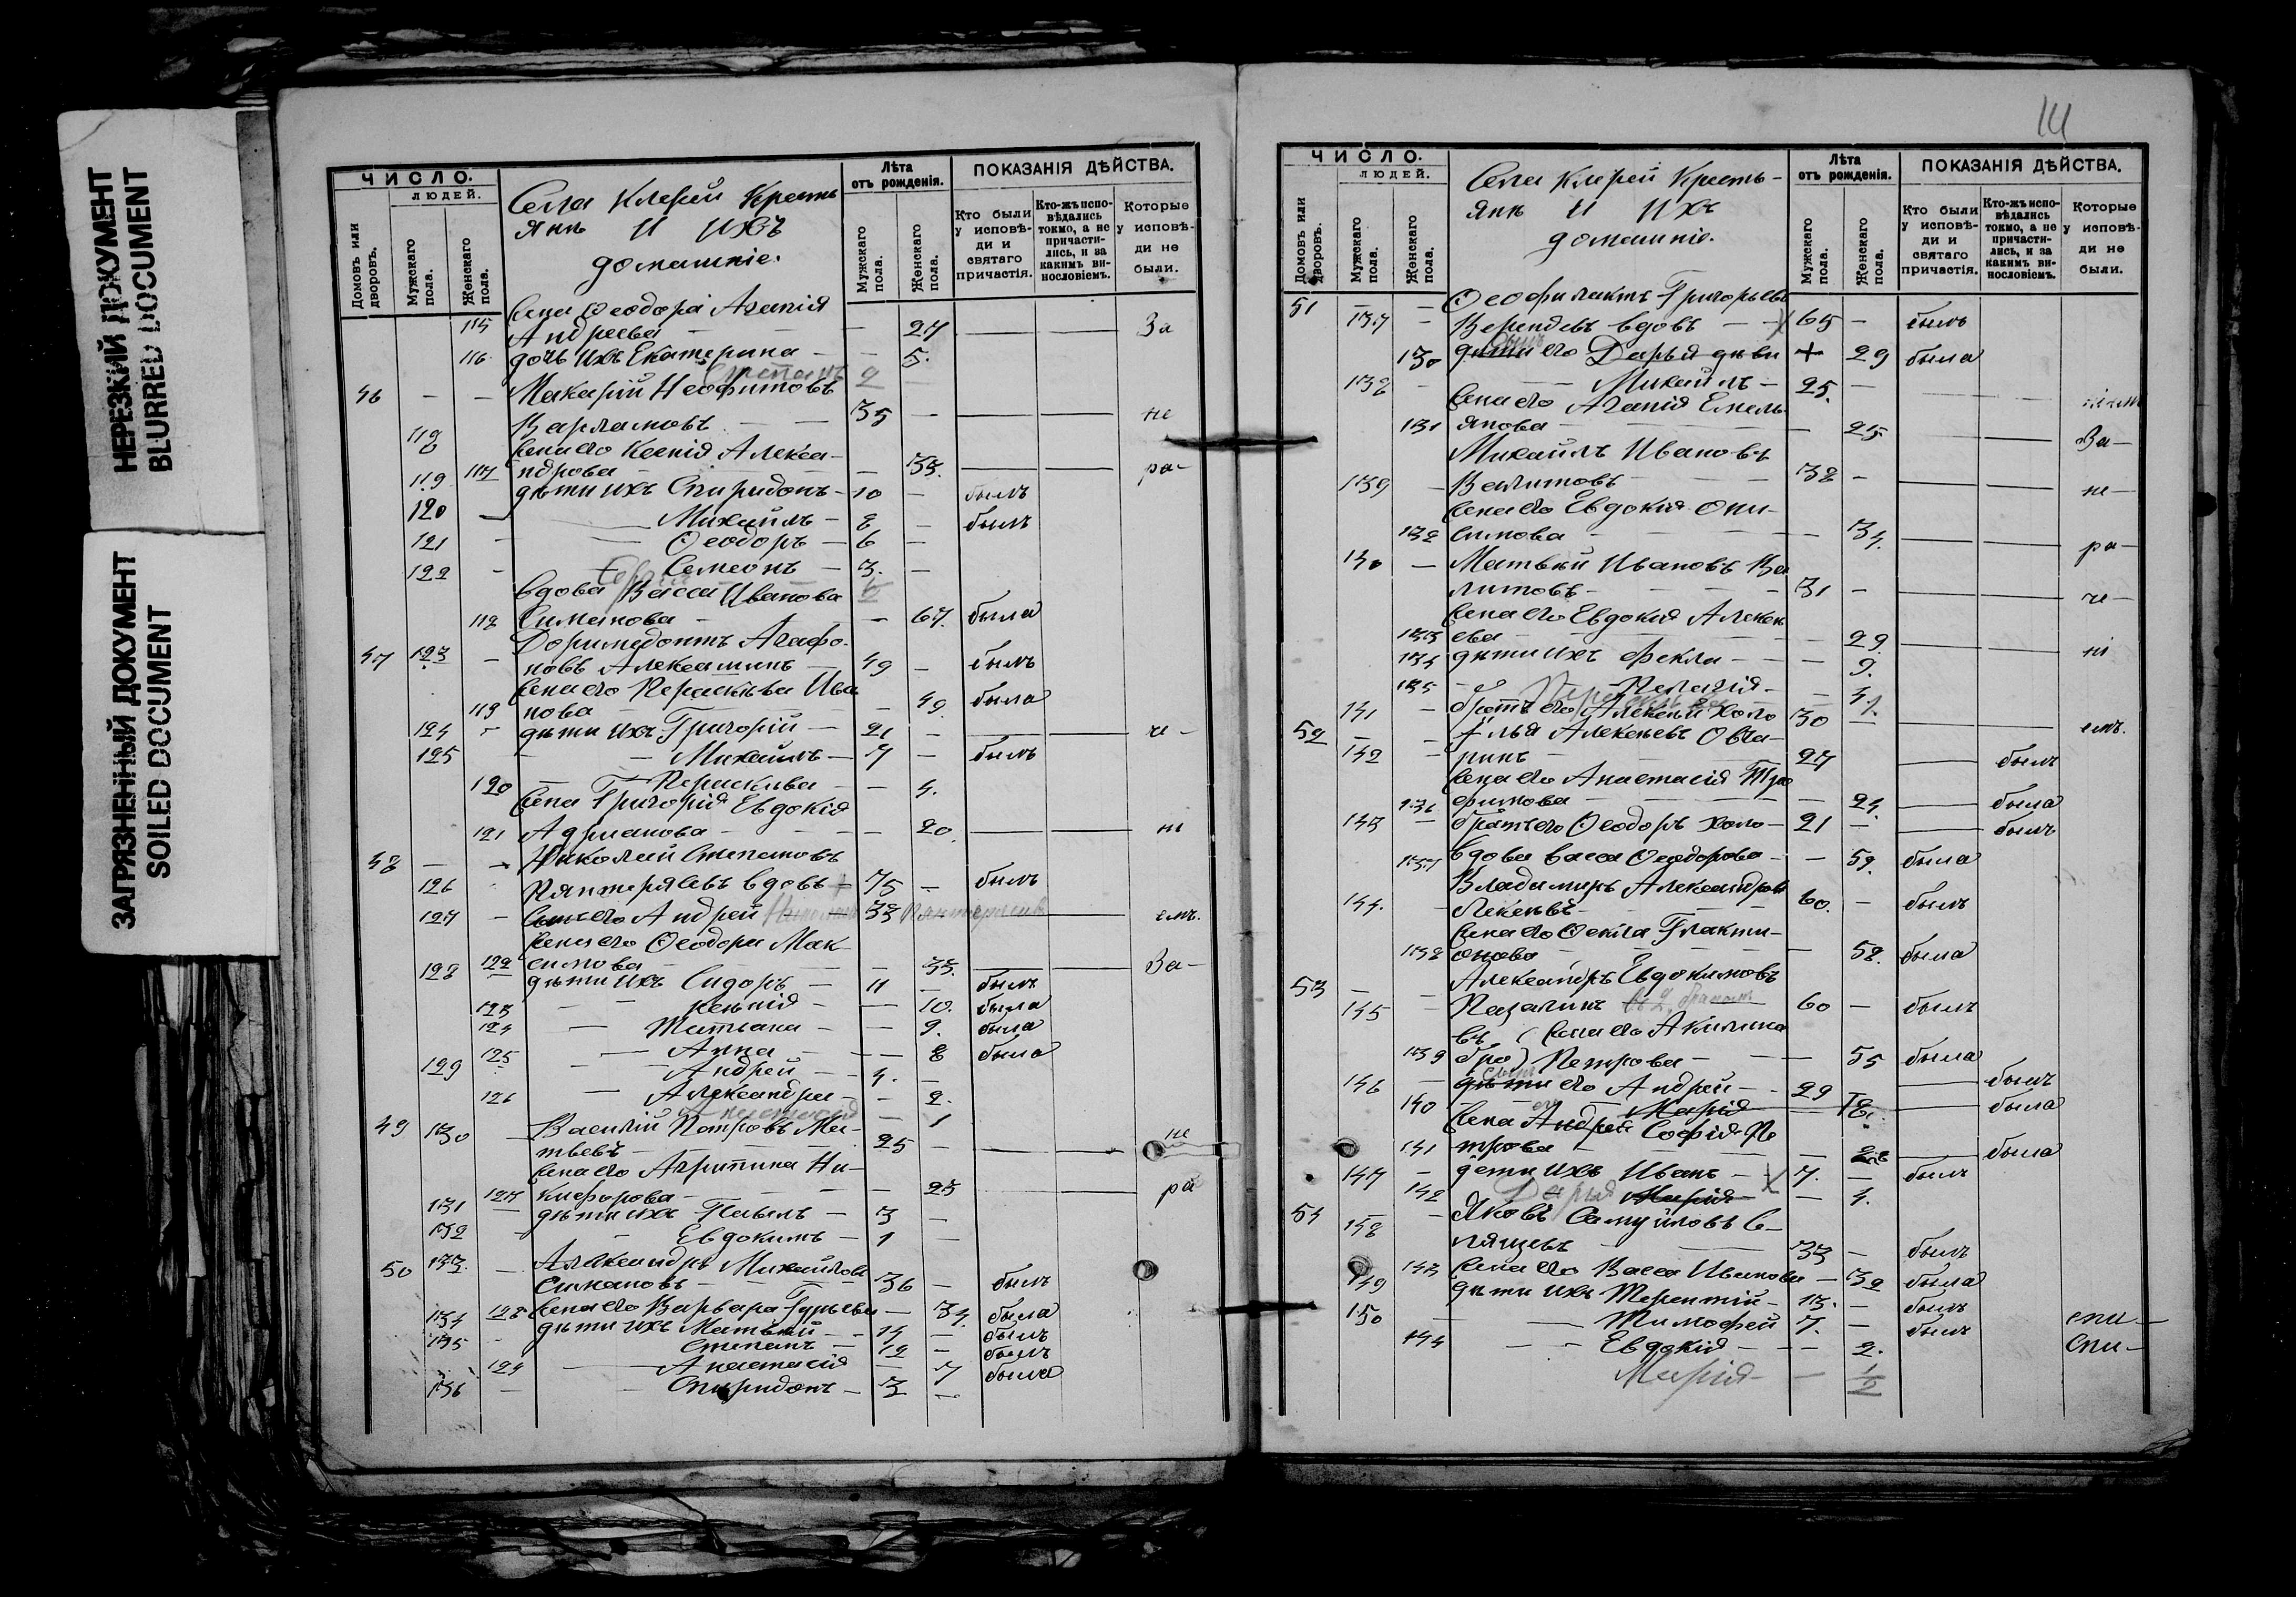 НЕРЕЗКИЙ ДОКУМЕНТ
BLURRED DOCUMENT
ЗАГРЯЗНЕННЫЙ ДОКУМЕНТ
SOILED DOCUMENT
ЧИСЛО.
ЛЮДЕЙ.
Домовъ или дворовъ.
Мужскаго пола.
Женскаго пола.
Села Клерей Кресть
янъ и ихъ
домашніе.
Лѣта
отъ рожденія.
Мужскаго пола.
Женскаго пола.
ПОКАЗАНІЯ ДѢЙСТВА.
Кто были у исповѣди и святаго причастія.
Кто-жъ исповѣдались токмо, а не причастились, и за какимъ винословіемъ.
Которые у исповѣди не были.
Жена Ѳеодора Агапія
115 Андреева — — — 27 — — За
116 дочь ихъ Екатерина — — 5.
Степанъ 2
46 — — Макарій Неофитовъ
118 Варламовъ — — 35 — — — не
Жена его Ксенія Алекса-
117 ндрова — — 33. — — ра-
119 дѣти ихъ Спиридонъ — 10 — былъ
120 — Михаилъ — 8 — былъ
121 — Ѳеодоръ — 6 —
122 — Семеонъ — 3. —
Вдова Васса Иванова
118 Симанова — — 67. была
Доримедонтъ Агафо-
47 123 — новъ Алексашинъ — 49 — былъ
Жена его Параскева Ива
119 нова — — 49. была
124 — дѣти ихъ Григорій — 21 — — — не-
125 — Михаилъ — 7 — былъ
120 — Параскева — — 4.
Жена Григорія Евдокія
121 Адріанова — — 20. — — ні
48 — — Николай Степановъ
126 Пянтерялевъ вдовъ + 75 — былъ
127 — Сынъ его Андрей — 33 — — емъ.
Жена его Ѳеодора Мак-
122 симова — — 33. — — За-
128 дѣти ихъ Сидоръ — 11 — былъ
123 — Ксенія — — 10. была
124 — Татьяна — — 9. была
125 — Анна — — 8 была
129 — Андрей — 4. —
126 — Александра — — 2.
Анастасія — 1
49 130 — Василій Петровъ Ма-
твевъ — 25 — — — не
Жена его Агрипина Ни-
127 кифорова — — 23 — — ра
131 дѣти ихъ Павелъ — 3 —
132 — Евдокимъ — 1 —
50 133. — Александръ Михайловъ
Симановъ — — 36 — былъ
128 Жена его Варвара Гурьева — 34. была
134 дѣти ихъ Матвѣй — 14 — былъ
135 — Степанъ — 12 — былъ
129 — Анастасія — 7 была
136 — Спиридонъ — 3 —
14
ЧИСЛО.
ЛЮДЕЙ.
Домовъ или дворовъ.
Мужскаго пола.
Женскаго пола.
Села Клерей Кресть-
янъ и ихъ
домашніе.
Лѣта
отъ рожденія.
Мужскаго пола.
Женскаго пола.
ПОКАЗАНІЯ ДѢЙСТВА.
Кто были у исповѣди и святаго причастія.
Кто-жъ исповѣдались токмо, а не причастились, и за какимъ винословіемъ.
Которые у исповѣди не были.
51 — — Ѳеофилактъ Григорьевъ
137 — Верендевъ вдовъ — 65 — былъ
130 дѣти его Дарья дѣви + 29 была
138 — Михаилъ — 25. —
Жена его Агапія Емель
131 янова — — 25 — — За-
Михаилъ Ивановъ
139 — Валитовъ — 38 — — — не-
Жена его Евдокія Они-
132 симова — — 34. — — ра-
140 — Матвѣй Ивановъ Ва
литовъ — 31 — — — че-
Жена его Евдокія Алексѣ
133 ева — — 29. — — ні
134 дѣти ихъ Фекла — — 9.
135 — Пелагія — — 4
141 — братъ его Алексѣй холо 30 — — — емъ.
52 — — Илья Алексѣевъ Овча-
142 — ринъ — 27 — былъ
Жена его Анастасія Тро
136 фимова — — 24. — была
143 — братъ его Ѳеодоръ холо — 21 — — былъ
137 Вдова Васса Ѳеодорова — — 59. была
Владимиръ Александров
144. — Лексѣевъ — 60. — былъ
Жена его Ѳекла Галакти-
138 онова — — 58. была
53 — — Александръ Евдокимовъ
145 — Пазалинъ 60 — былъ
въ ( Жена его Акилина
139 бра) Петрова — — 55 была
146 — дѣти его Андрей — 29 — былъ
140 Марія — 18. — была
Жена Андрея Софія Пе
141 трова — — 28 — была
147 — дѣти ихъ Иванъ — 7. — былъ
142 Дарья Марія — — 4.
54 148 — Яковъ Самуиловъ С-
пящевъ — 33 — былъ
143 Жена его Васса Иванова — 32 была
149 дѣти ихъ Терентій — 13. — былъ
150 — Тимофей 7. — былъ спи-
144 — Евдокія — — 2. Спи-
Марія — 1/2